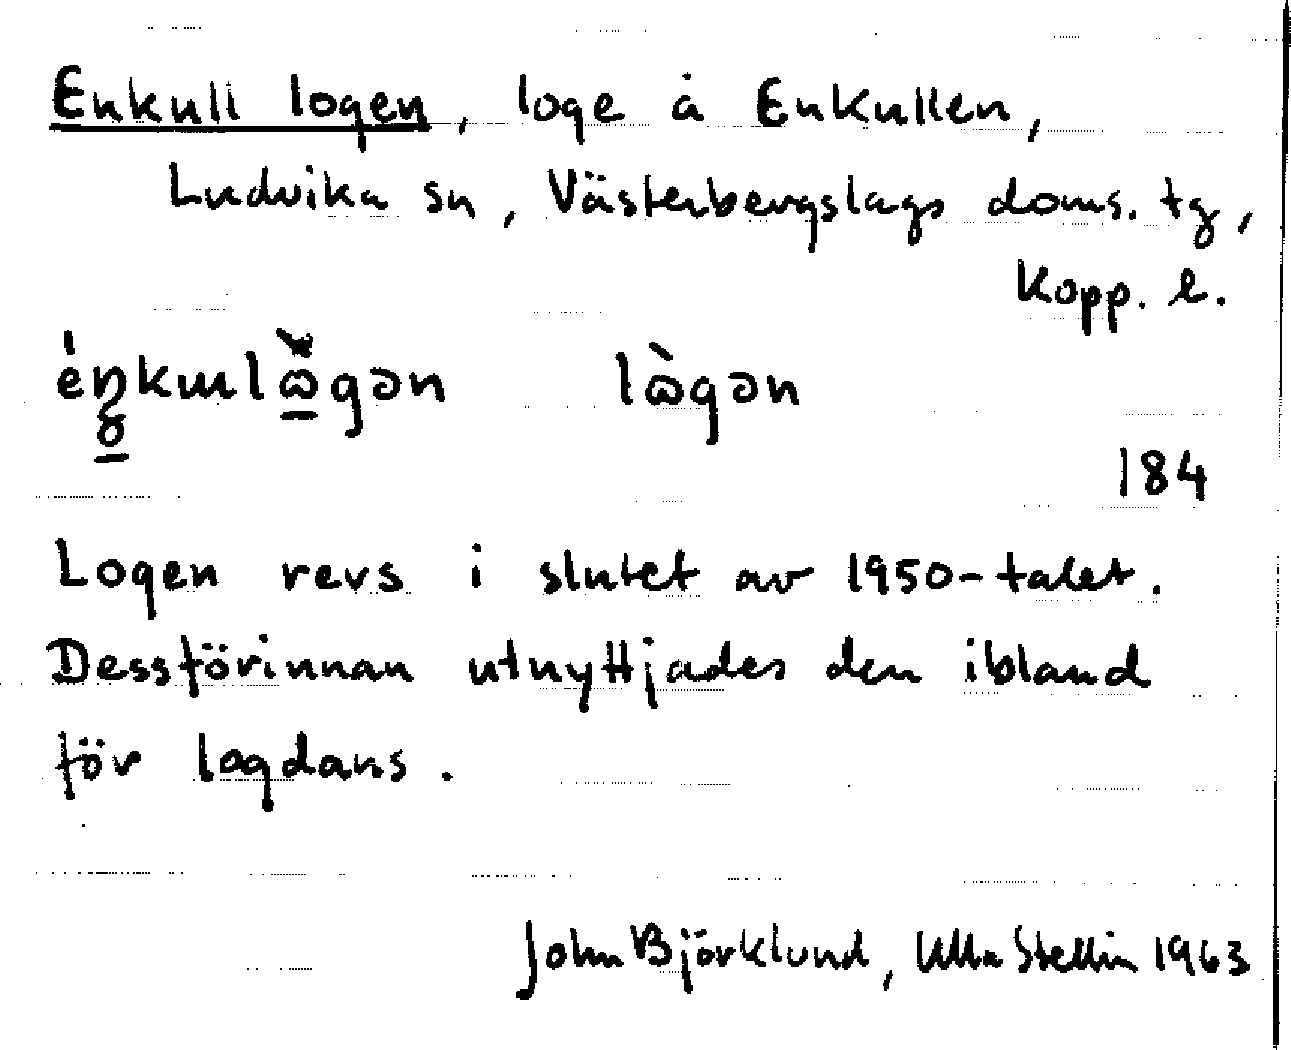 Enkull logen, loge å Enkullen,
Ludvika sn, Västerbergslags doms. tg,
Kopp. l.
lògən
184
Logen revs i slutet av 1950-talet.
Dessförinnan utnyttjades den ibland
för logdans.
John Björklund, Ulla Stellin 1963